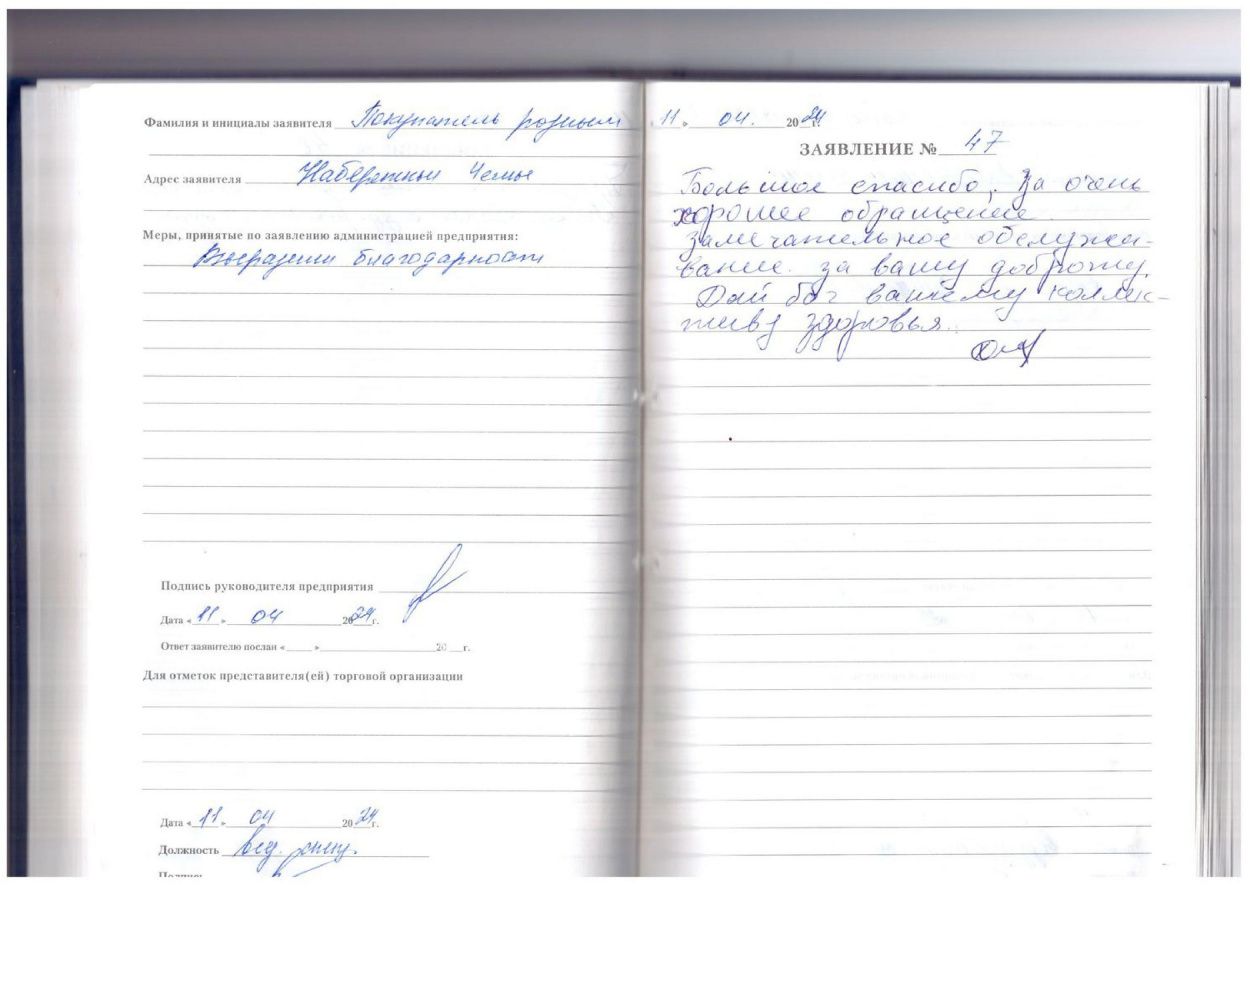 Фамилия и инициалы заявителя Покупатель
Адрес заявителя Набережные Челны
Меры, принятые по заявлению администрацией предприятия:
Выразили благодарность
Подпись руководителя предприятия
Дата «11» 04 2024г.
Ответ заявителю послан «___» 20__г.
Для отметок представителя(ей) торговой организации
Дата «11» 04 2024г.
Должность вед. спец.
Подпись
11. 04. 2024г.
ЗАЯВЛЕНИЕ № 47
Большое спасибо, За очень
хорошее обращение
замечательное обслужи-
вание за вашу доброту.
Дай бог вашему коллек-
тиву здоровья.